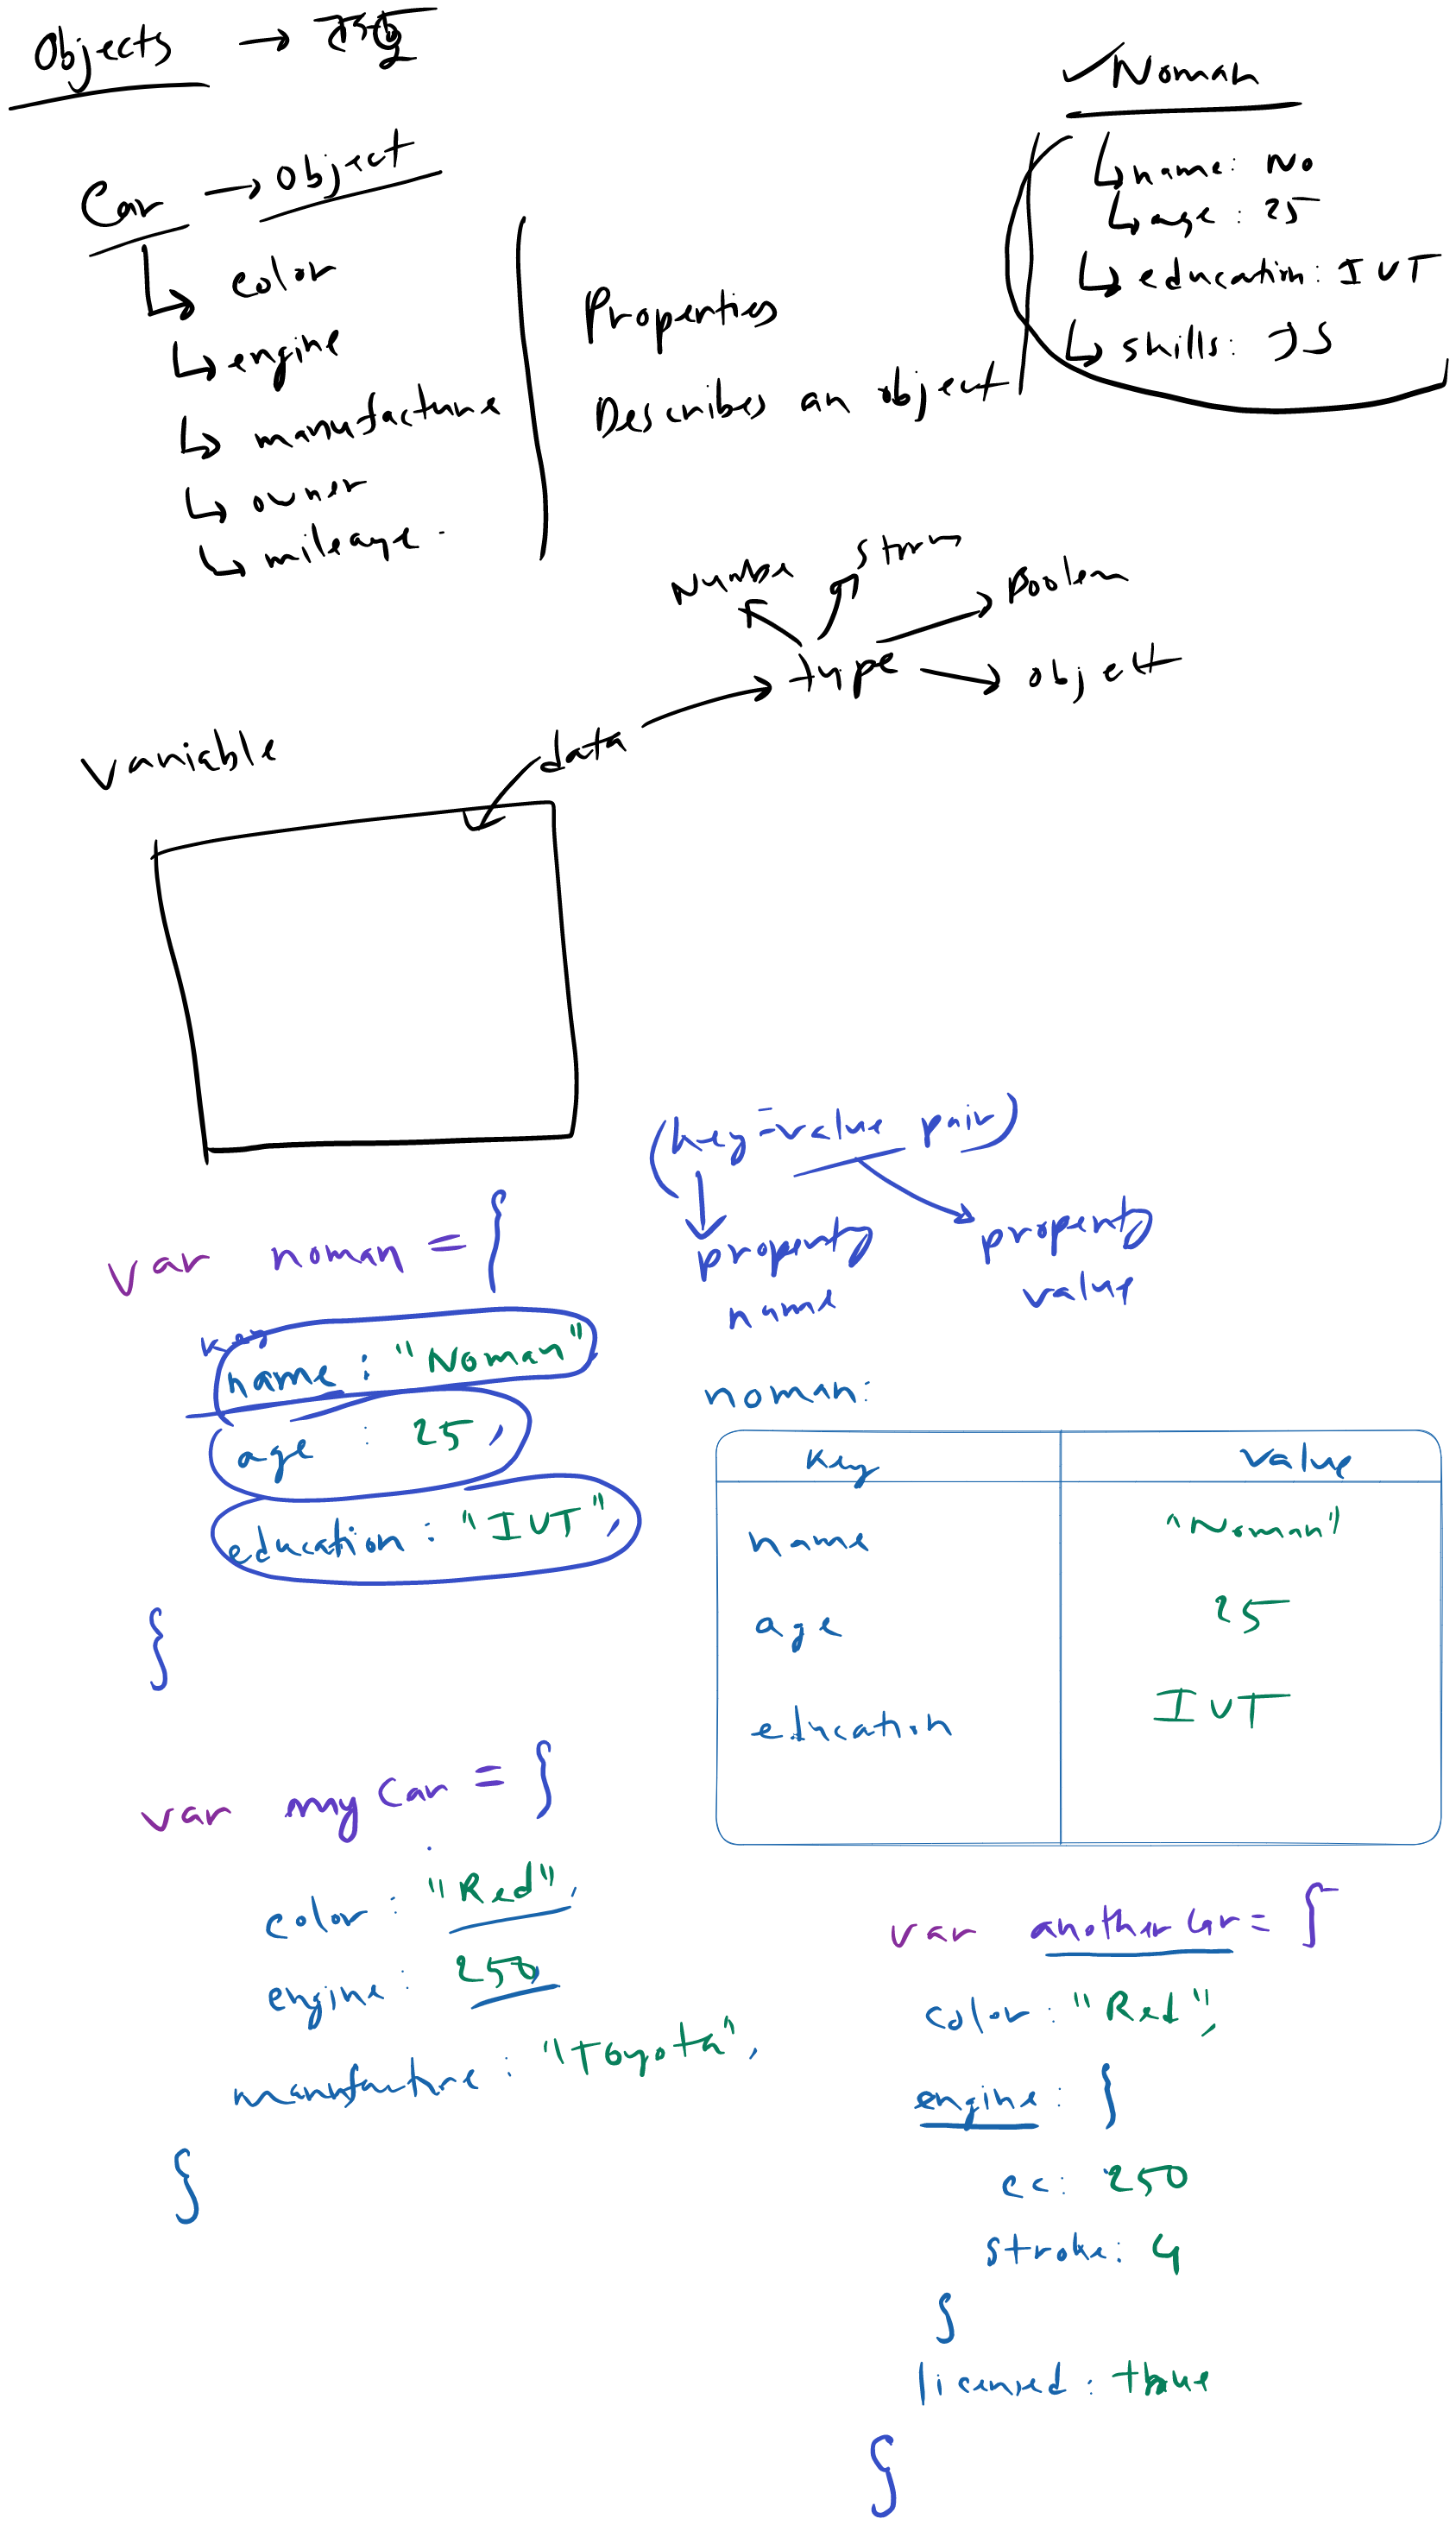 Objects → বস্তু
Car → object
color
engine
manufacture
owner
mileage
Properties
Describes an object
Noman
name: No
age: 25
education: IUT
skills: JS
Boolean
type
object
data
variable
(key=value pair)
property name
property value
var noman = {
key
name: "Noman"
age : 25,
education: "IUT",
}
noman:
key value
name "Noman"
age 25
education IUT
var my car = {
color: "Red",
engine: 250,
manufacture: "Toyota",
}
var another car = {
color: "Red",
engine: {
cc: 250
stroke: 4
}
licensed: true
}